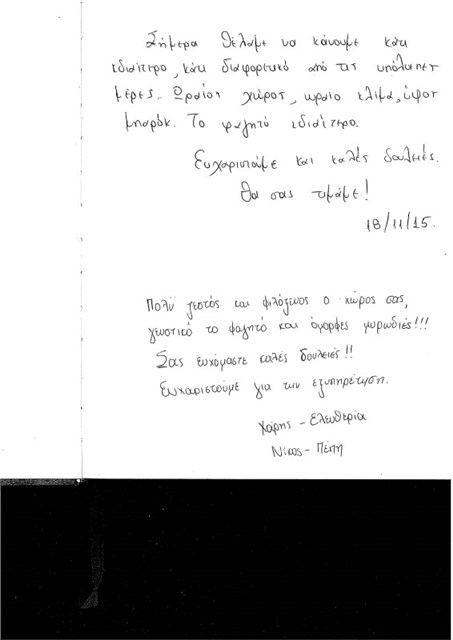 Σήμερα θέλαμε να κάνουμε κάτι
ιδιαίτερο, κάτι διαφορετικό από τις υπόλοιπες
μέρες. Ωραίος χώρος, ωραίο κλίμα, ύφος
μπαρόκ. Το φαγητό ιδιαίτερο.
Ευχαριστούμε και καλές δουλειές.
Θα σας τιμάμε!
18/11/15.
Πολύ ζεστός και φιλόξενος ο χώρος σας,
γευστικό το φαγητό και όμορφες μυρωδιές!!!
Σας ευχόμαστε καλές δουλειές!!
Ευχαριστούμε για την εξυπηρέτηση.
Χάρης - Ελευθερία
Νίκος - Πέπη